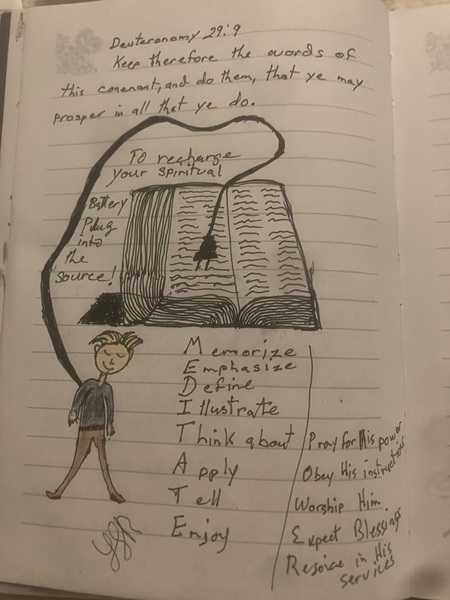 Deuteronomy 29:9
Keep therefore the words of
this covenant, and do them, that ye may
prosper in all that ye do.
To recharge
your spiritual
Battery
Plug
into
the
source!
Memorize
Emphasize
Define
Illustrate
Think about
Apply
Tell
Enjoy
Pray for His power
Obey His instruction
Worship Him
Expect Blessings
Rejoice in His
services